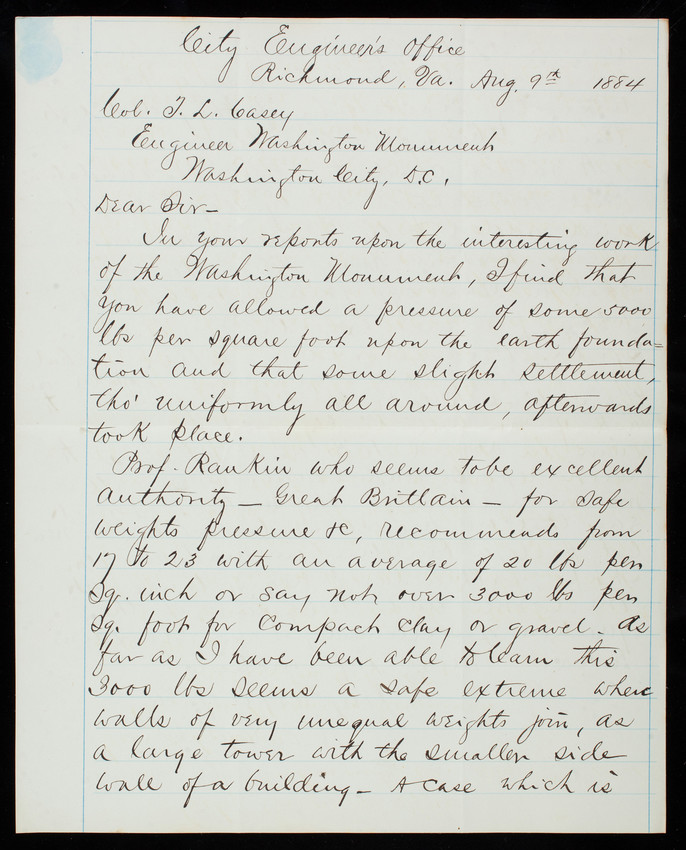 City Engineer's Office
Richmond, Va. Aug. 9th 1884
Col. T. L. Casey
Engineer Washington Monument
Washington City, D.C.
Dear Sir—
In your reports upon the interesting work
of the Washington Monument, I find that
you have allowed a pressure of some 5000
lbs per square foot upon the earth founda=
tion and that some slight settlement,
tho' uniformly all around, afterwards
took place.
Prof. Rankin who seems to be excellent
authority — Great Brittain — for safe
weights pressure &c, recommends from
17 to 23 with an average of 20 lbs per
Sq. inch or say not over 3000 lbs per
Sq. foot for compact clay or gravel. As
far as I have been able to learn this
3000 lbs seems a safe extreme where
walls of very unequal weights join, as
a large tower with the smaller side
wall of a building — A case which is